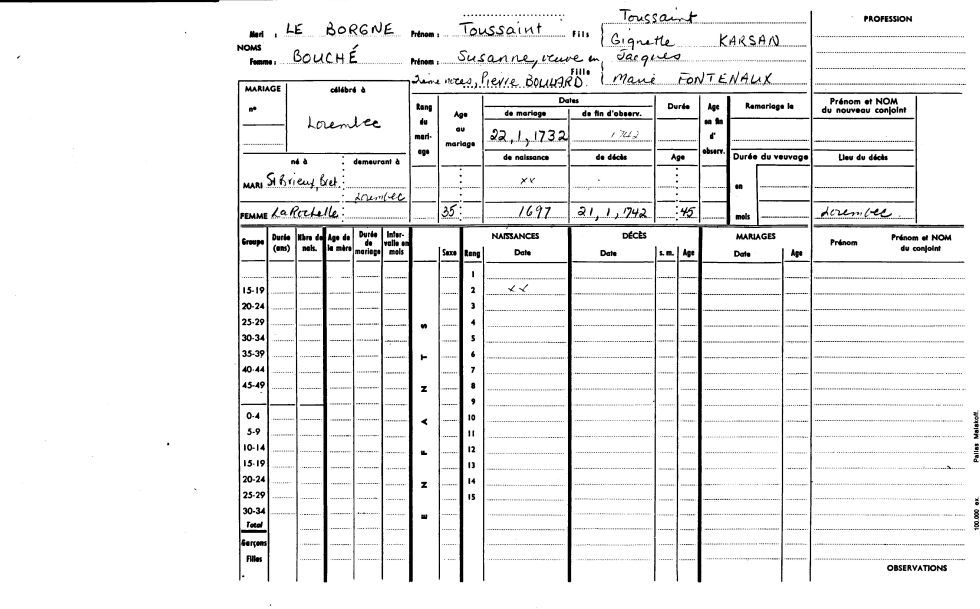 Toussaint
Mari : LE BORGNE Prénom : Toussaint Fils Gignette KARSAN
PROFESSION
NOMS
Femme : BOUCHÉ Prénom : Susanne, veuve en Jacques
2ième noces, Pierre BOUHARD Fille Marie FONTENAUX
MARIAGE célébré à
n° Lorembec
Rang du mariage
Age au mariage
Dates
de mariage de fin d'observ.
22, 1, 1732 1742
Durée
Age en fin d'observ.
Remariage le
Prénom et NOM du nouveau conjoint
né à demeurant à
de naissance de décès Age
Durée du veuvage
Lieu du décès
MARI St Brieux, Bret. Lorembec xx en
FEMME La Rochelle 35 1697 21, 1, 1742 45 mois Lorembec
Groupe Durée (ans) Nbre de nais. Age de la mère Durée de mariage Intervalle en mois
Sexe Rang
NAISSANCES
Date
DÉCÈS
Date s. m. Age
MARIAGES
Date Age
Prénom Prénom et NOM du conjoint
ENFANTS
1
15-19 2 xx
20-24 3
25-29 4
30-34 5
35-39 6
40-44 7
45-49 8
9
0-4 10
5-9 11
10-14 12
15-19 13
20-24 14
25-29 15
30-34
Total
Garçons
Filles
OBSERVATIONS
100.000 ex. Pallas Malakoff.